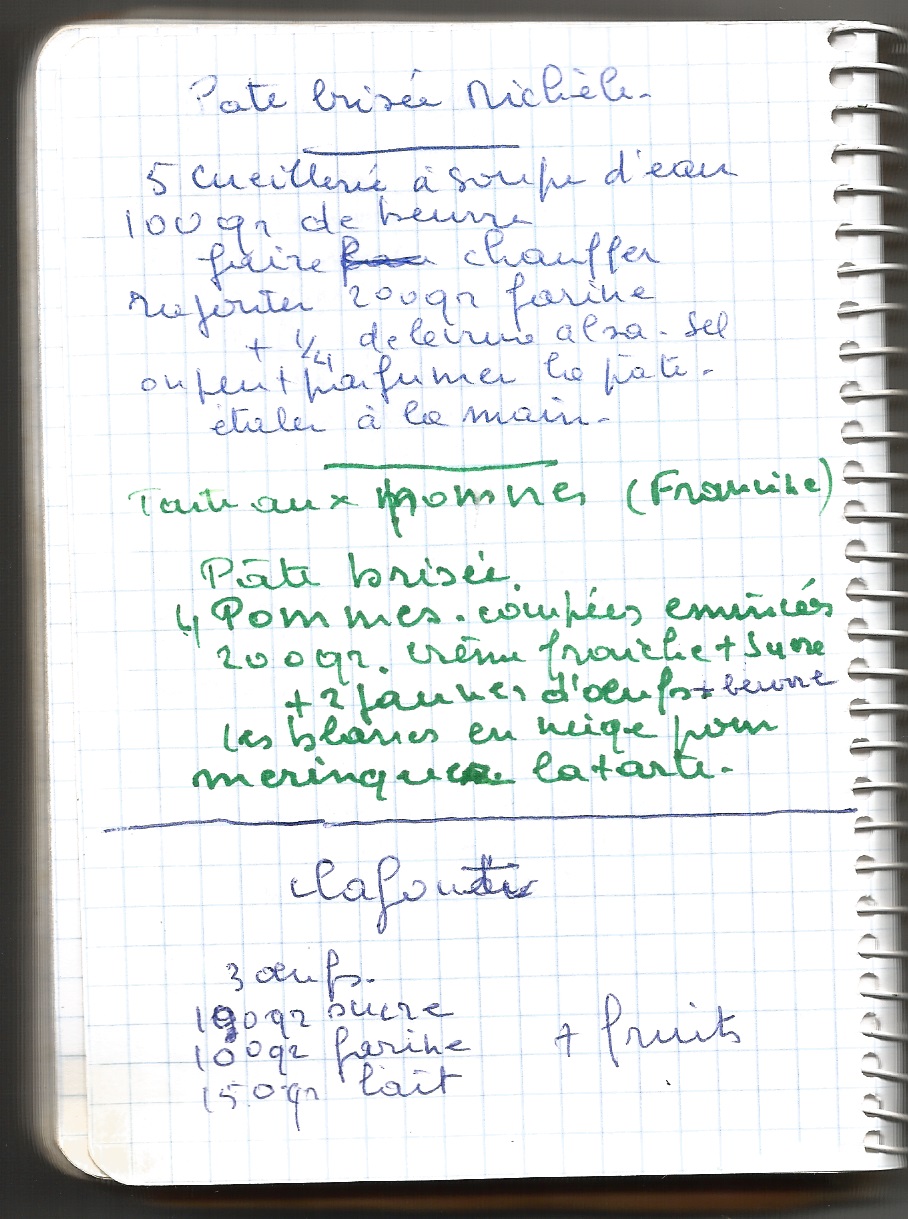 Pate brisée Michèle.
5 Cueillerie à soupe d'eau
100 gr de beurre
faire chauffer
rajouter 200 gr farine
+ 1/4 de levure alsa. sel
on peut parfumer la pâte.
étaler à la main.
Tarte aux pommes (Francine)
Pâte brisée.
4 Pommes. coupées émincés
200 gr. crème fraiche + sucre
+ 2 jaunes d'œufs + beurre
les blancs en neige pour
meringuer la tarte.
Clafoutis
3 œufs.
100 gr sucre
100 gr farine + fruits
150 gr lait